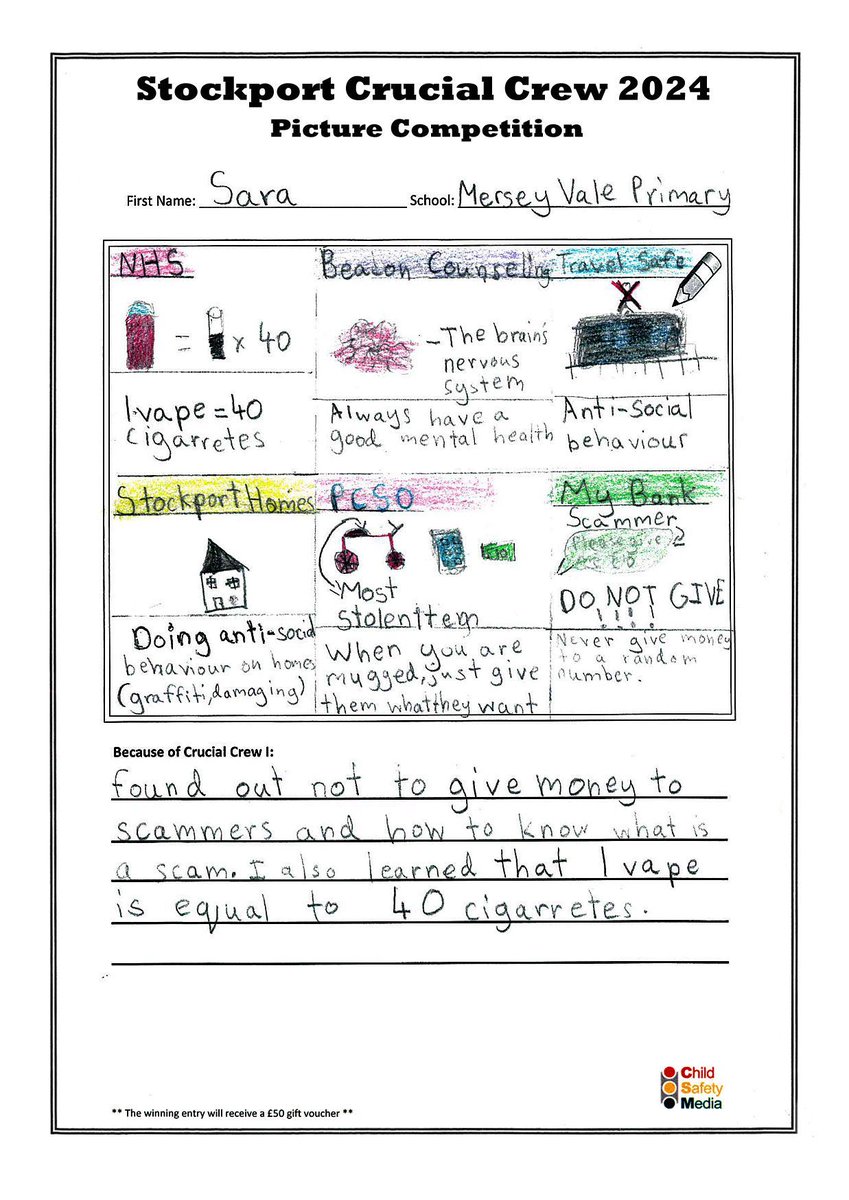 Stockport Crucial Crew 2024
Picture Competition
First Name: Sara School: Mersey Vale Primary
NHS
= x 40
1 vape = 40
cigarretes
Beacon Counselling
-The brain's
nervous
system
Always have a
good mental health
Travel Safe
X
Anti-social
behaviour
Stockport Homes
Doing anti-social
behaviour on homes
(graffiti, damaging)
PCSO
Most
Stolen Item
When you are
mugged, just give
them what they want
My Bank
Scammer
Please give
DO NOT GIVE
! ! ! !
Never give money
to a random
number.
Because of Crucial Crew I:
found out not to give money to
scammers and how to know what is
a scam. I also learned that 1 vape
is equal to 40 cigarretes.
Child
Safety
Media
** The winning entry will receive a £50 gift voucher **